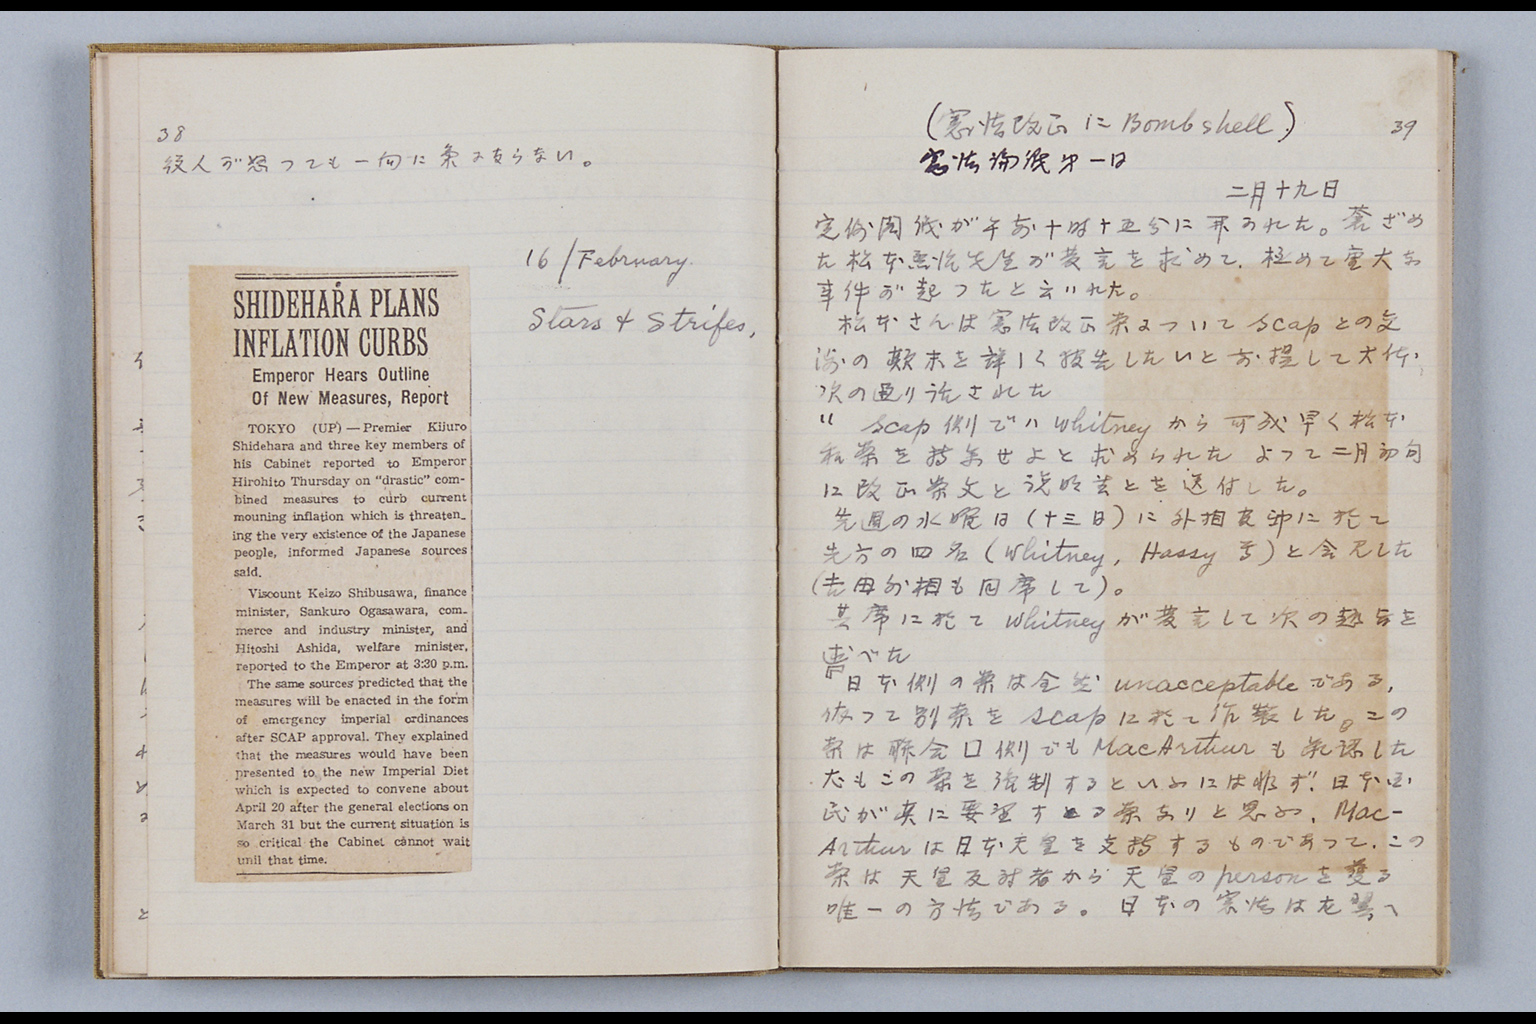 38
役人が怒つても一向に気にならない。
16/February.
Stars & Strifes,
SHIDEHARA PLANS
INFLATION CURBS
Emperor Hears Outline
Of New Measures, Report
TOKYO (UP)—Premier Kijuro
Shidehara and three key members of
his Cabinet reported to Emperor
Hirohito Thursday on "drastic" com-
bined measures to curb current
mouning inflation which is threaten-
ing the very existence of the Japanese
people, informed Japanese sources
said.
Viscount Keizo Shibusawa, finance
minister, Sankuro Ogasawara, com-
merce and industry minister, and
Hitoshi Ashida, welfare minister,
reported to the Emperor at 3:30 p.m.
The same sources predicted that the
measures will be enacted in the form
of emergency imperial ordinances
after SCAP approval. They explained
that the measures would have been
presented to the new Imperial Diet
which is expected to convene about
April 20 after the general elections on
March 31 but the current situation is
so critical the Cabinet cannot wait
unil that time.
39
(憲法改正に Bombshell)
憲法論議第一日
二月十九日
定例閣議が午前十時十五分に開かれた。蒼ざめ
た松本烝治先生が発言を求めて、極めて重大な
事件が起つたと云はれた。
松本さんは憲法改正案について Scap との交
渉の顛末を詳しく報告したいと前提して大体、
次の通り話された
" Scap 側では Whitney から可成早く松本
私案を持参せよと求められた よつて二月初旬
に改正案文と説明書とを送付した。
先週の水曜日(十三日)に外相官邸に於て
先方の四名(Whitney, Hassy 等)と会見した
(吉田外相も同席して)。
其席に於て Whitney が発言して次の趣旨を
述べた
日本側の案は全然 unacceptable である、
依つて別案を Scap に於て作製した。この
案は聯合口側でも MacArthur も承認した
尤もこの案を強制するといふには非ず、日本国
民が真に要望する案なりと思ふ、Mac-
Arthur は日本天皇を支持するものであつて、この
案は天皇反対者から天皇の person を護る
唯一の方法である。日本の憲法は左翼へ